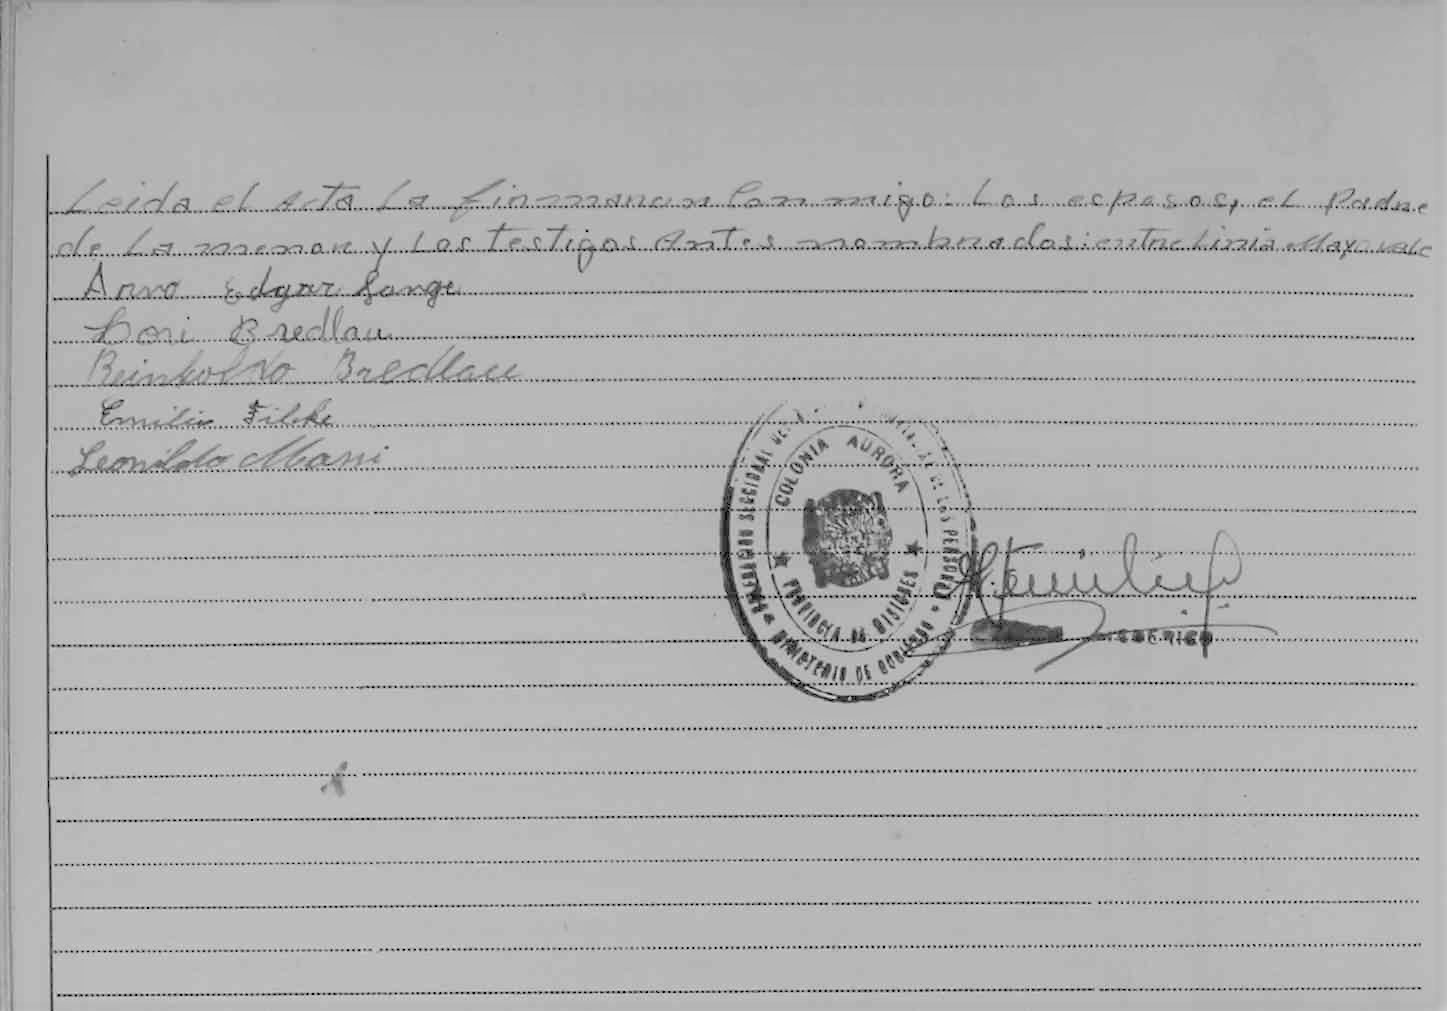 Leida el Acta La firmaron Conmigo: Los esposos, el Padre
de La menor y Los testigos Antes nombrados: entre Linia Mayo vale
Arno Edgar Lange
Lori Bredlau
Reinholdo Bredlau
Emilio Filske
Leonildo Massi
SECCIONAL DE LAS PERSONAS
COLONIA AURORA
PROVINCIA DE MISIONES
MINISTERIO DE GOBIERNO